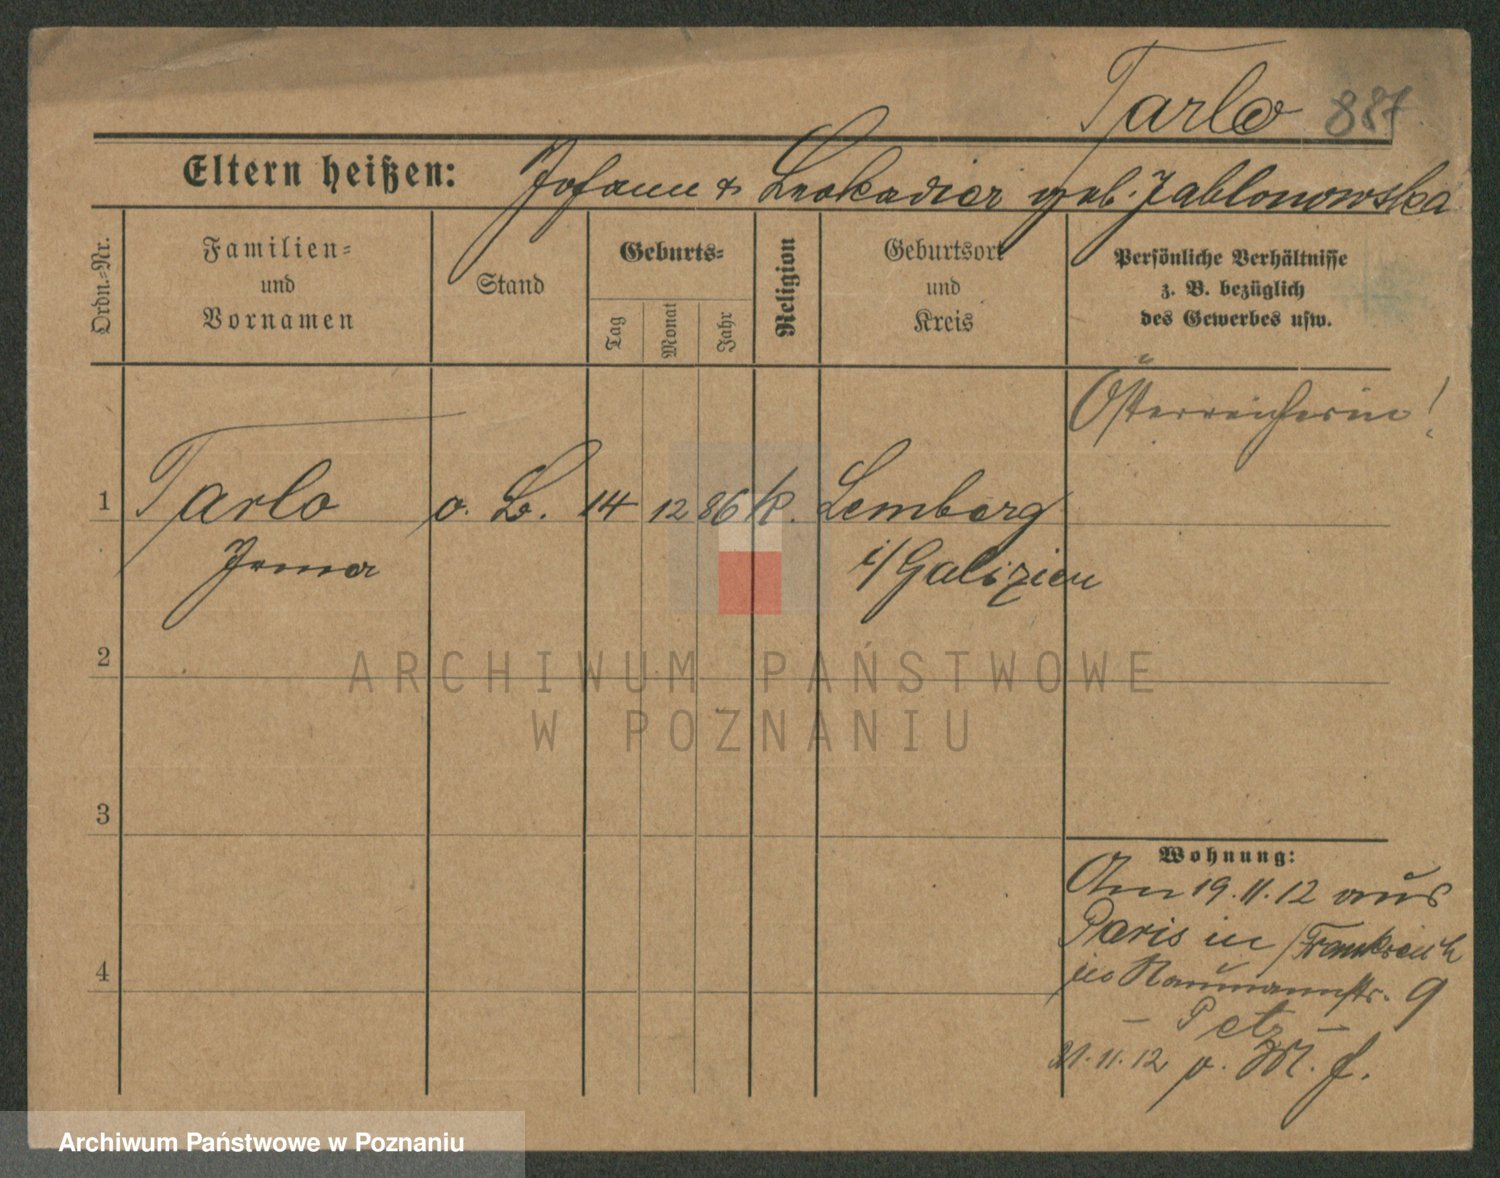 Tarlo 887
Eltern heißen: Johann & Leokadia geb. Jablonowska
Ordn.-Nr.
Familien-
und
Vornamen
Stand
Geburts-
Tag
Monat
Jahr
Religion
Geburtsort
und
Kreis
Persönliche Verhältnisse
z. B. bezüglich
des Gewerbes usw.
Österreicherin!
1 Tarlo o. B. 14 12 86 k. Lemberg
Irma i/Galizien
2
ARCHIWUM PAŃSTWOWE
W POZNANIU
3
Wohnung:
Am 19.11.12 aus
Paris in /Frankreich
Naumannstr. 9
– Petz –
21.11.12 v. M. f.
4
Archiwum Państwowe w Poznaniu